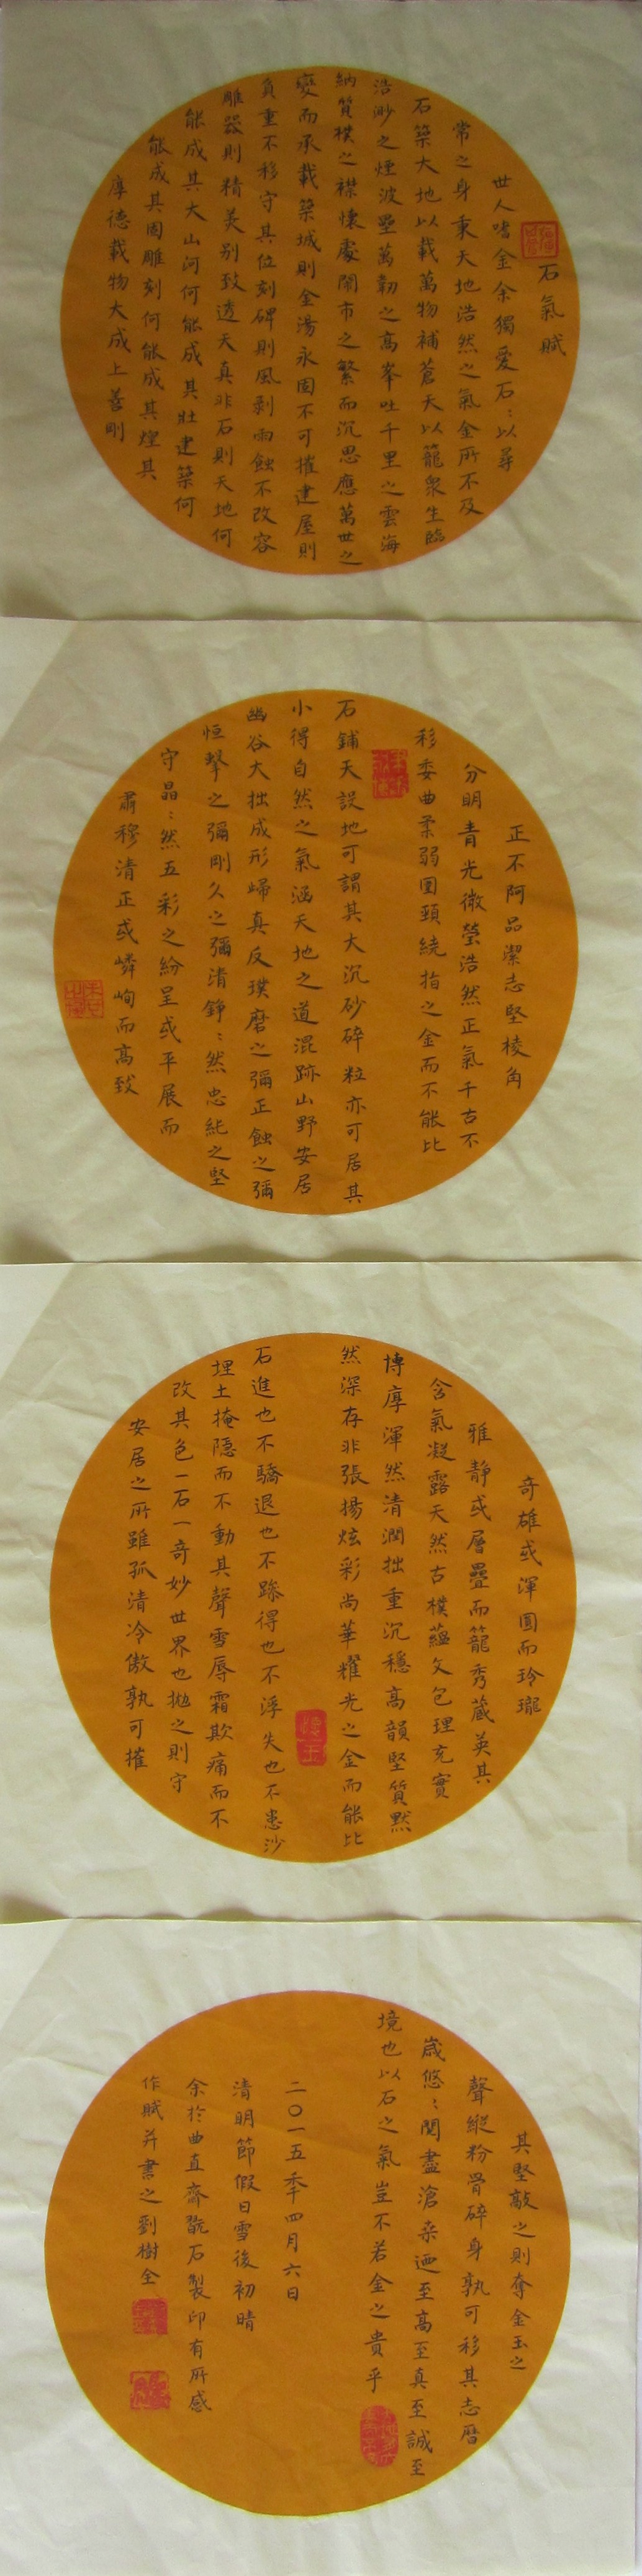 石氣賦
世人嗜金余獨愛石:以尋
常之身秉天地浩然之氣金所不及
石築大地以載萬物補蒼天以籠衆生臨
浩渺之煙波壘萬韌之高峯吐千里之雲海
納質樸之襟懷處鬧市之繁而沉思應萬世之
變而承載築城則金湯永固不可摧建屋則
負重不移守其位刻碑則風剥雨蝕不改容
雕器則精美别致透天真非石則天地何
能成其大山河何能成其壯建築何
能成其固雕刻何能成其煌其
厚德載物大成上善剛
正不阿品潔志堅棱角
分明青光微瑩浩然正氣千古不
移委曲柔弱圓頸繞指之金而不能比
石鋪天設地可謂其大沉砂碎粒亦可居其
小得自然之氣涵天地之道混跡山野安居
幽谷大拙成形歸真反璞磨之彌正蝕之彌
恒擊之彌剛久之彌清錚:然忠純之堅
守晶:然五彩之紛呈或平展而
肅穆清正或嶙峋而高致
奇雄或渾圓而玲瓏
雅静或層疊而籠秀蔵英其
含氣凝露天然古樸藴文包理充實
博厚渾然清潤拙重沉穩高韻堅質黙
然深存非張揚炫彩尚華耀光之金而能比
石進也不驕退也不躁得也不浮失也不恚沙
埋土掩隱而不動其聲雪辱霜欺痛而不
改其色一石一奇妙世界也拋之則守
安居之所雖孤清冷傲孰可摧
其堅敲之則奪金玉之
聲縱粉骨碎身孰可移其志曆
歲悠:閲盡滄桑迺至高至真至誠至
境也以石之氣豈不若金之貴乎
二〇一五年四月六日
清明節假日雪後初晴
余於曲直齋翫石製印有所感
作賦并書之劉樹全